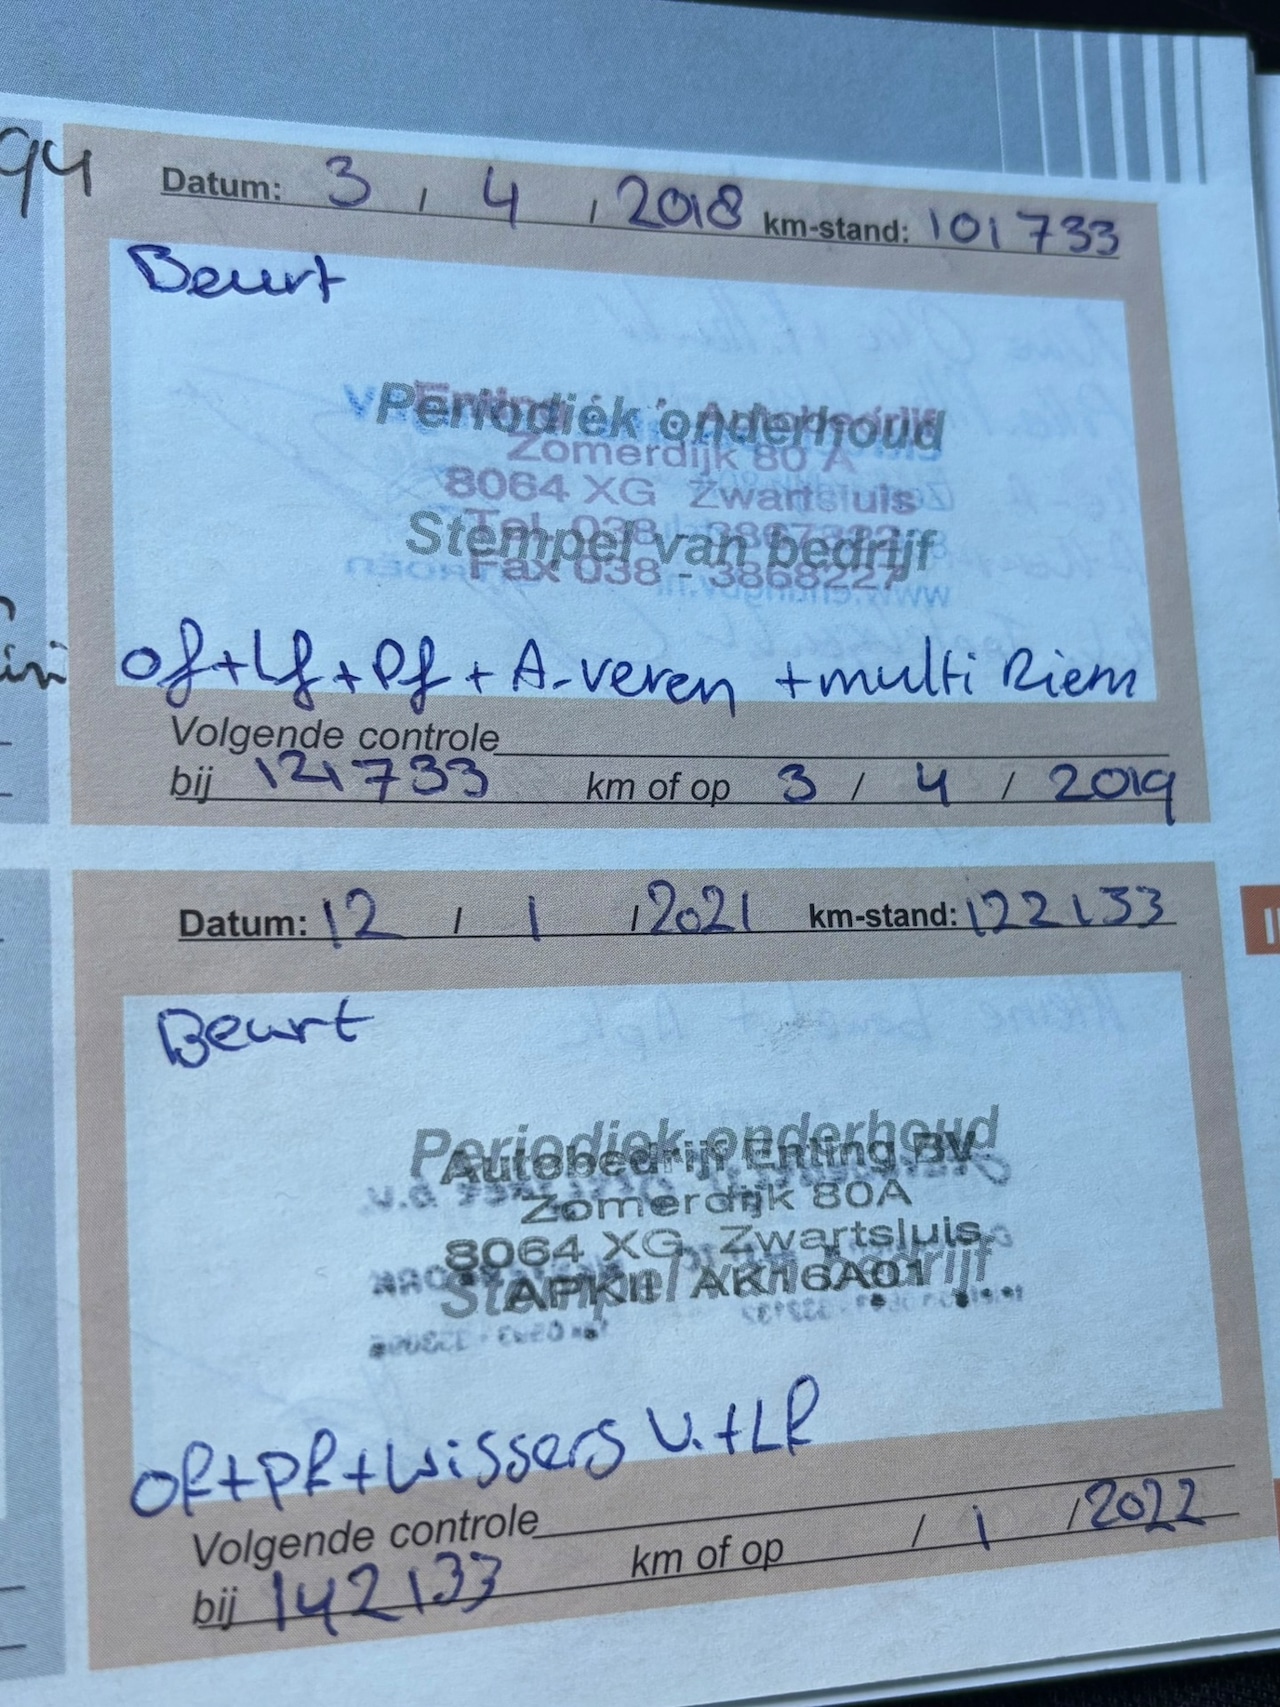 94
Datum: 3 / 4 / 2018 km-stand: 101733
Beurt
Periodiek onderhoud
Enting Autobedrijf
Zomerdijk 80 A
8064 XG Zwartsluis
Stempel van bedrijf
Tel. 038 -
Fax 038 - 3868227
of+Lf+Pf+A-veren +multi Riem
Volgende controle
bij 121733 km of op 3 / 4 / 2019
Datum: 12 / 1 / 2021 km-stand: 122133
Beurt
Periodiek onderhoud
Autobedrijf Enting BV
Zomerdijk 80A
8064 XG Zwartsluis
Stempel van bedrijf
APKII AK16A01
of+pf+wissers V.+Lf
Volgende controle
bij 142133 km of op / 1 / 2022